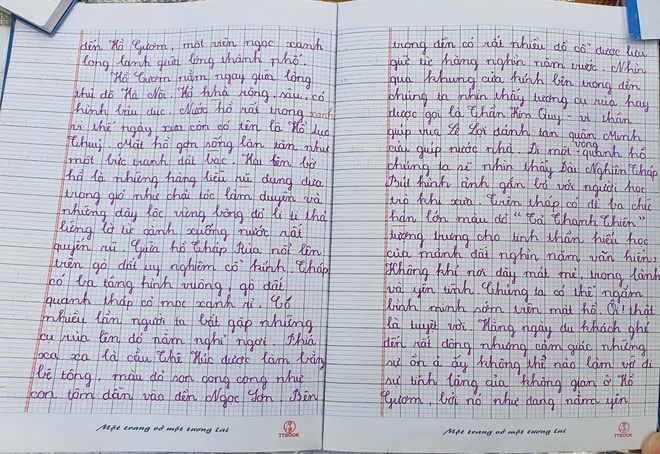 đến Hồ Gươm, một viên ngọc xanh
long lanh giữa lòng thành phố.
Hồ Gươm nằm ngay giữa lòng
thủ đô Hà Nội. Hồ khá rộng, sâu, có
hình bầu dục. Nước hồ rất trong xanh
vì thế ngày xưa còn có tên là Hồ Lục
Thuỷ. Mặt hồ gợn sóng lăn tăn như
một bức tranh dát bạc. Hai bên bờ
hồ là những hàng liễu rủ đung đưa
trong gió như chải tóc làm duyên và
những cây lộc vừng bông đỏ li ti thả
liêng lờ từ cành xuống nước rất
quyến rũ. Giữa hồ Tháp Rùa nổi lên
trên gò đất uy nghiêm cổ kính. Tháp
có ba tầng hình vuông, gò đất
quanh tháp cỏ mọc xanh rì. Có
nhiều lần người ta bắt gặp những
cụ rùa lên đó nằm nghỉ ngơi. Phía
xa xa là cầu Thê Húc được làm bằng
bê tông, màu đỏ son cong cong như
con tôm dẫn vào đền Ngọc Sơn. Bên
Một trang vở một tương lai
TTBOOK
trong đền có rất nhiều đồ cổ được lưu
giữ từ hàng nghìn năm trước. Nhìn
qua khung cửa kính bên trong đền
chúng ta nhìn thấy tượng cụ rùa hay
được gọi là Thần Kim Quy - vị thần
giúp vua Lê Lợi đánh tan quân Minh
cứu giúp nước nhà. Đi một vòng quanh hồ
chúng ta sẽ nhìn thấy Đài Nghiên Tháp
Bút hình ảnh gắn bó với người học
trò khi xưa. Trên tháp có đề ba chữ
hán lớn màu đỏ "Tả Thanh Thiên"
tượng trưng cho tinh thần hiếu học
của mảnh đất nghìn năm văn hiến.
Không khí nơi đây mát mẻ, trong lành
và yên tĩnh. Chúng ta có thể ngắm
bình minh sớm trên mặt hồ. Ôi! thật
là tuyệt vời. Hàng ngày du khách ghé
đến rất đông nhưng cảm giác những
sự ồn ã ấy không thể nào làm vỡ đi
sự tĩnh lặng của không gian ở Hồ
Gươm, bởi nó như đang nằm yên
Một trang vở một tương lai
TTBOOK